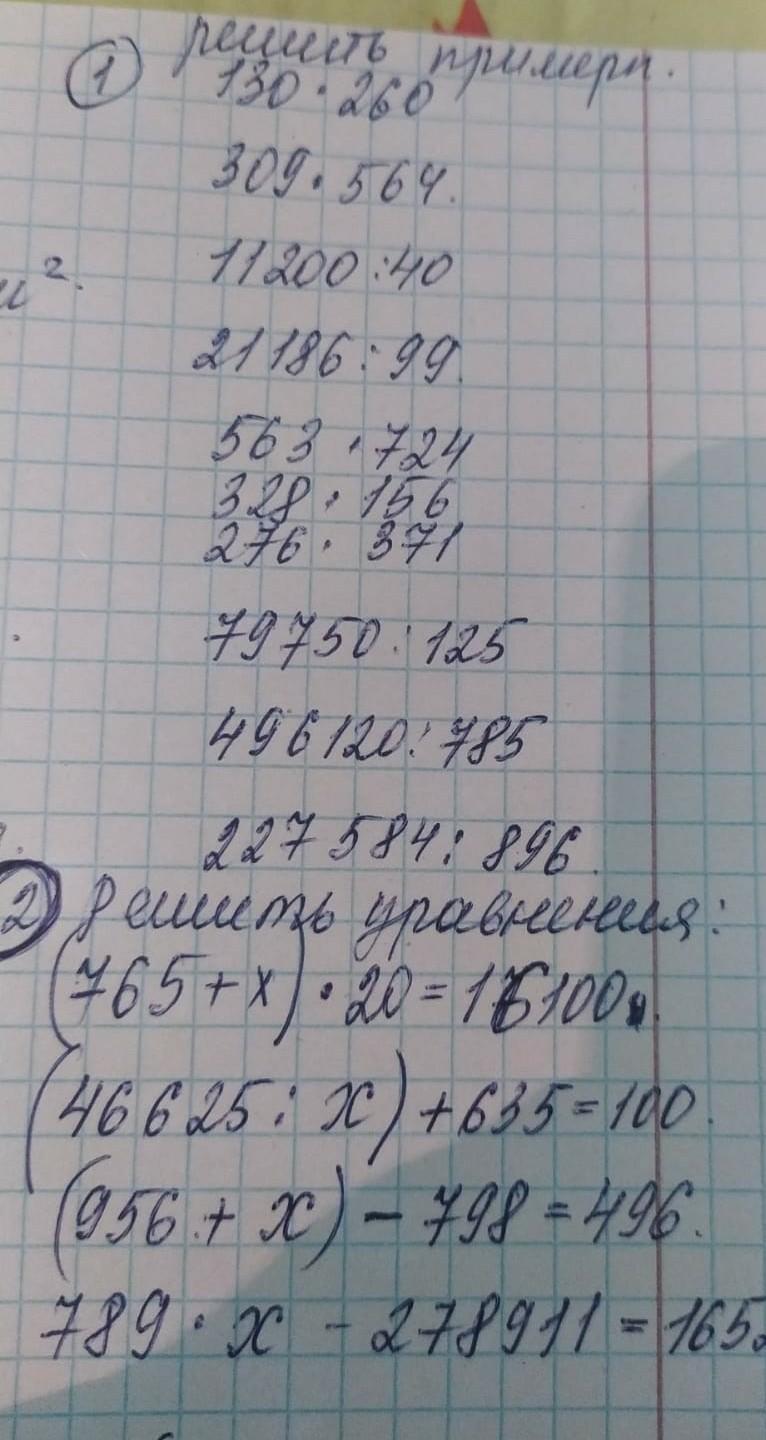 ① решить примеры.
130 · 260
309 · 564.
11200 : 40
м².
21186 : 99.
563 · 724
328 · 156
276 · 371
79750 : 125
496120 : 785
227584 : 896.
② Решить уравнения:
(765 + x) · 20 = 16100.
(46625 : x) + 635 = 100.
(956 + x) - 798 = 496.
789 · x - 278911 = 165